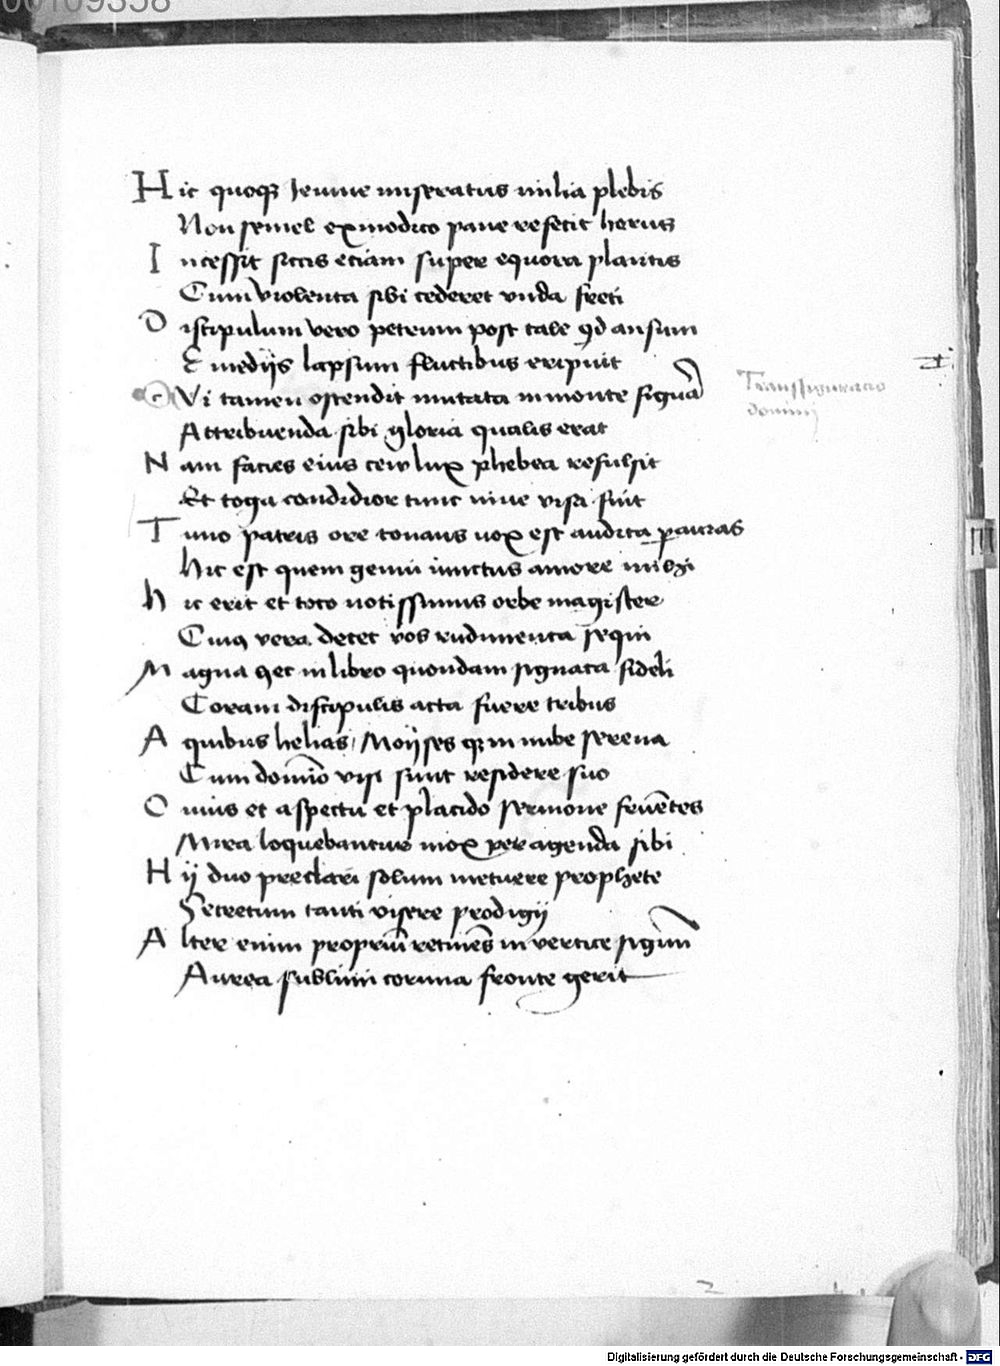 00109358
Hic quoqꝫ Ieiune miseratus milia plebis
Non semel ex modico pane refecit herus
Incessit siccis etiam super equora plantis
Cum violenta sibi cederet vnda freti
Discipulum vero petrum post tale ꝯd ansum
E medijs lapsum fluctibus eripuit
QVi tamen ostendit mutata in monte figurā
Attribuenda sibi gloria qualis erat
Transfiguracio
domini
Nam facies eius ceu lux phebea refulsit
Et toga condidior tunc niue visa fuit
Tunc patris ore tonans uox est audita
Hic est quem genui iunctus amore mihi
hic erit et toto notissimus orbe magister
Cuiꝯ vera decet vos rudimenta sequi
Magna hec in libro quondam signata fideli
Coram discipulis acta fuere tribus
A quibus helias, Moijses qꝫ in nube serena
Cum domīo visi sunt residere suo
Cuius et aspectu et placido sermone feruētes
Mira loquebantur mox per agenda sibi
Hij duo preclari solum metuere prophete
Secretum tanti visere prodigij
Alter enim propriū retinēs in vertice signum
Aurea sublimi cornua fronte gerit
2
Digitalisierung gefördert durch die Deutsche Forschungsgemeinschaft - DFG